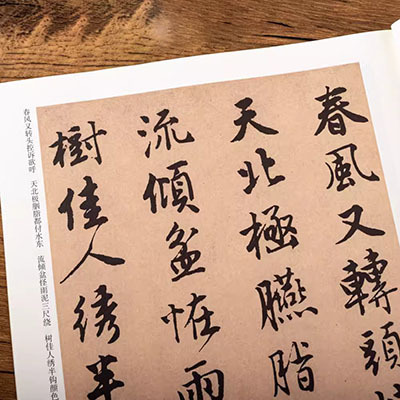 春風又轉頭
天北極臙脂
流傾盆恠雨
樹佳人綉半
春风又转头控诉欲呼 天北极胭脂都付水东 流倾盆怪雨泥三尺绕 树佳人绣半钩颜色